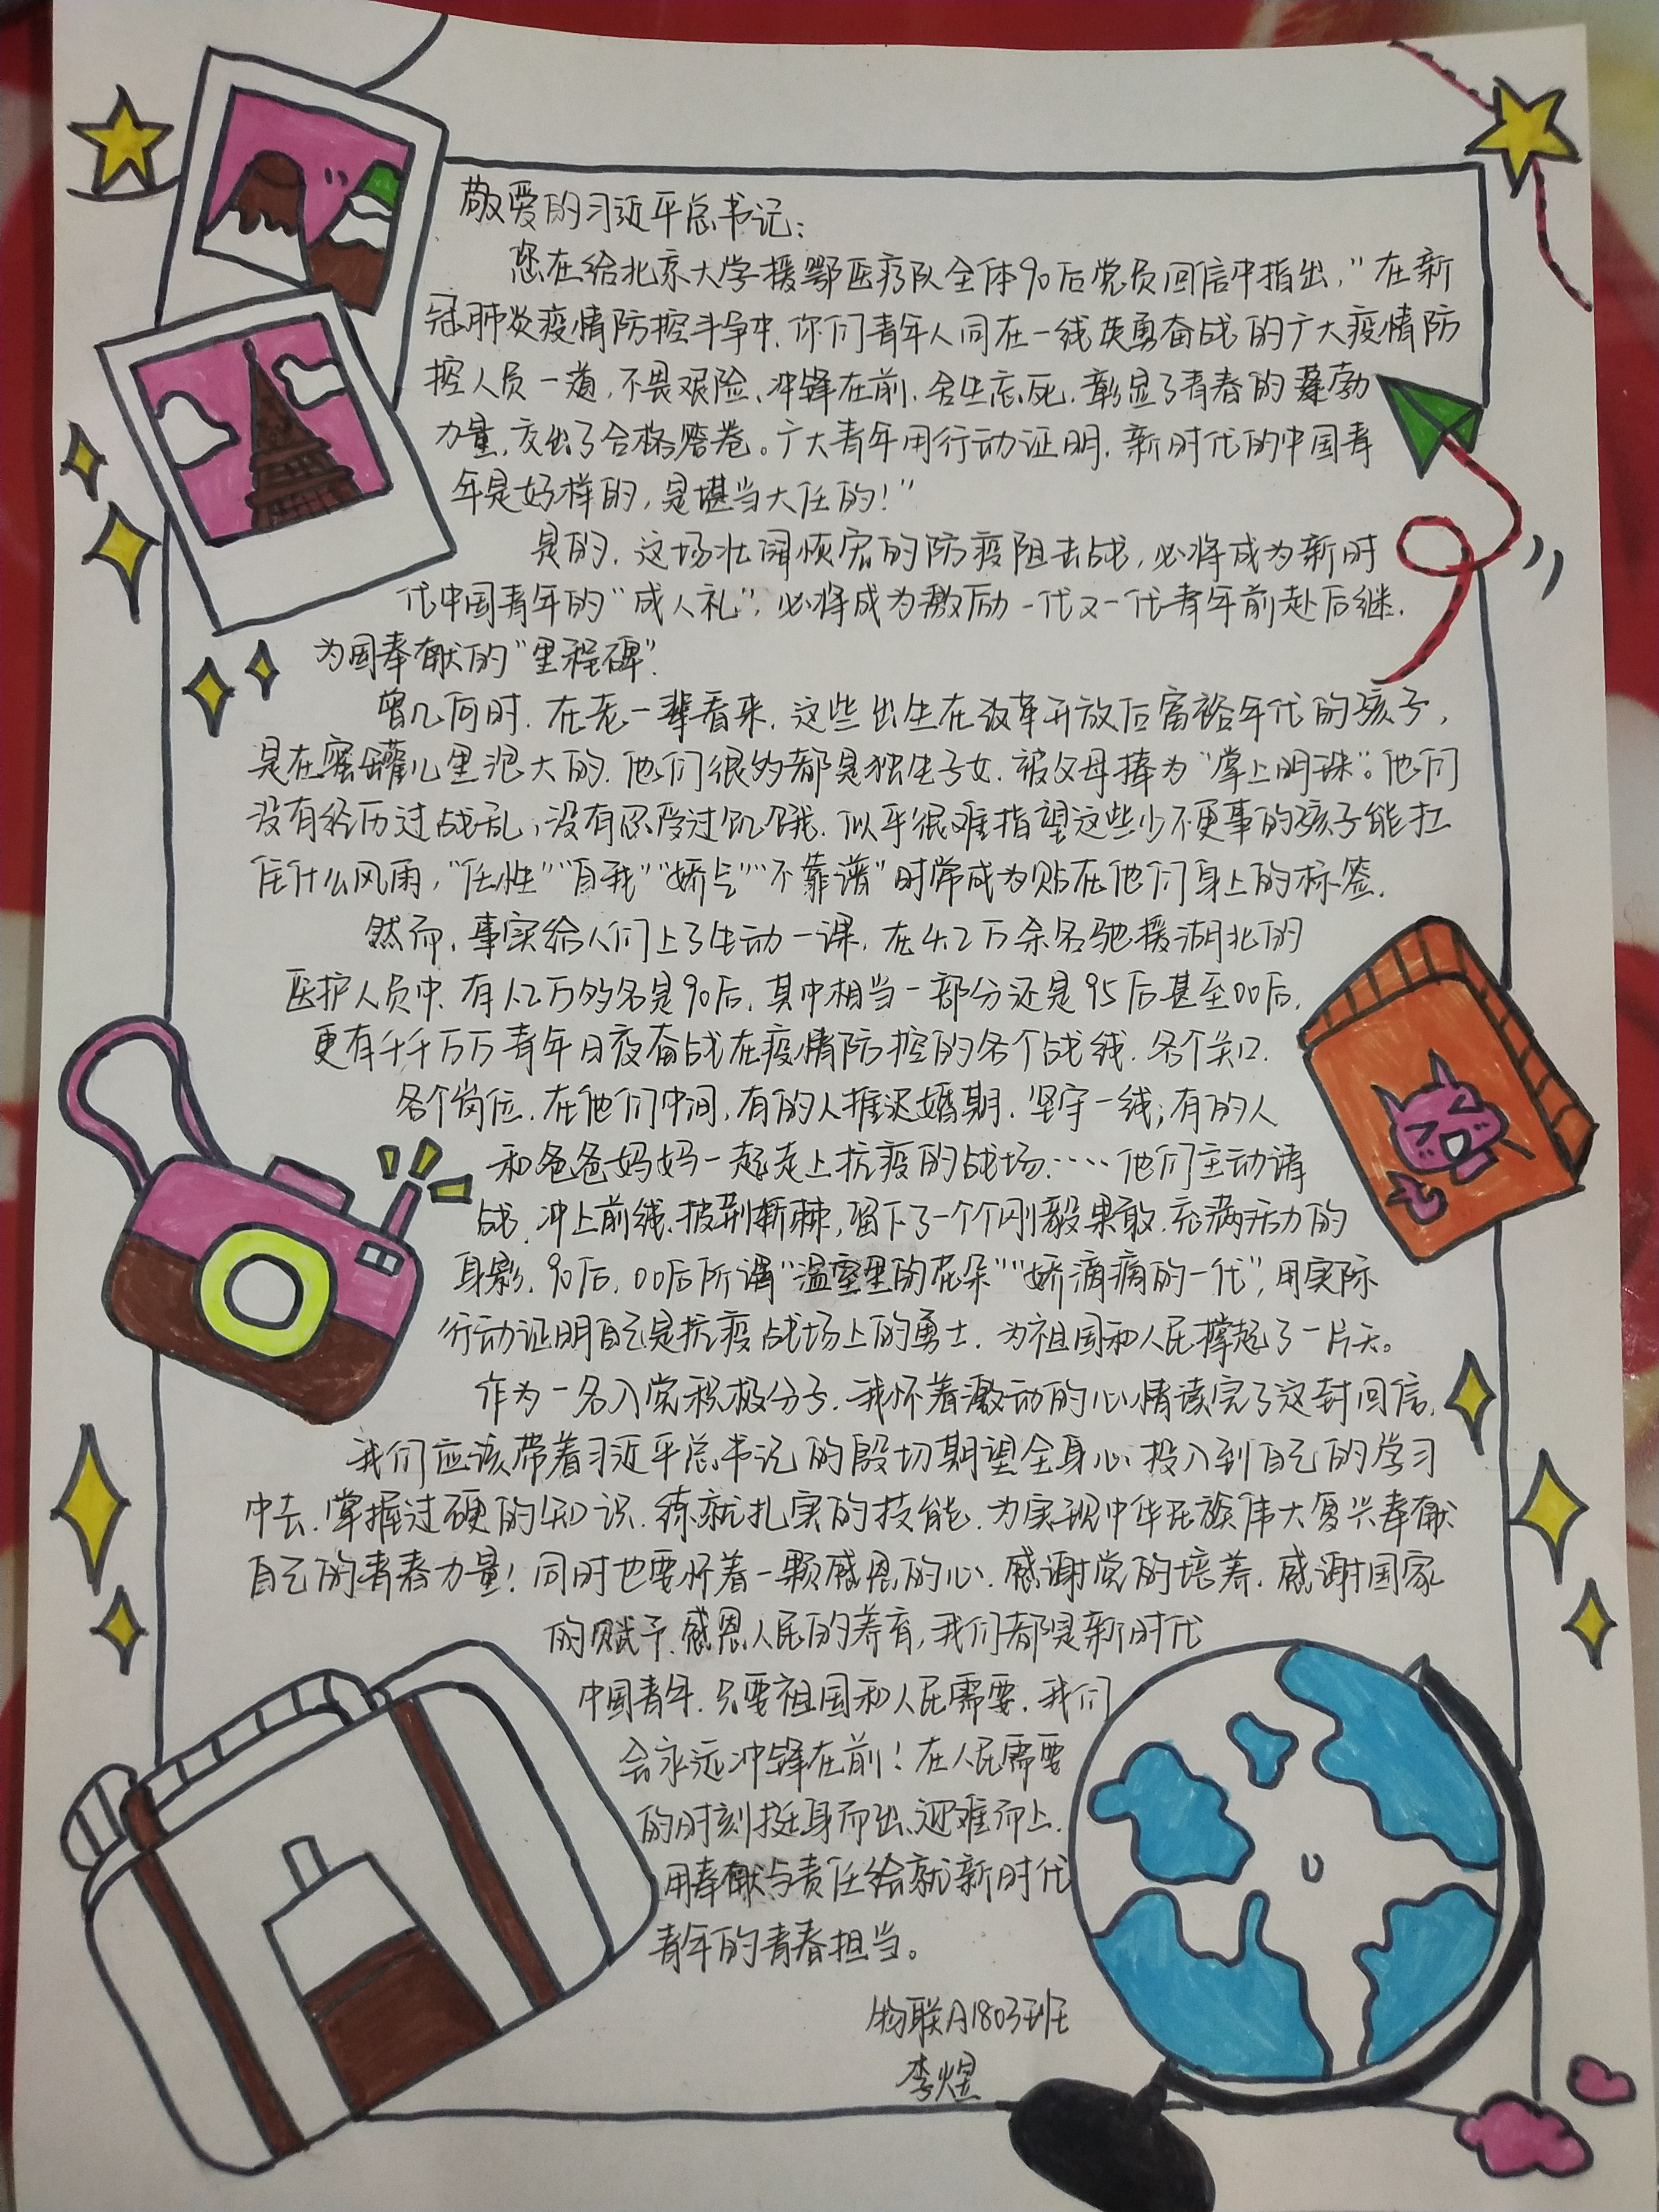 敬爱的习近平总书记：
您在给北京大学援鄂医疗队全体90后党员回信中指出，"在新
冠肺炎疫情防控斗争中，你们青年人同在一线英勇奋战的广大疫情防
控人员一道，不畏艰险、冲锋在前、舍生忘死，彰显了青春的蓬勃
力量，交出了合格答卷。广大青年用行动证明，新时代的中国青
年是好样的，是堪当大任的！"
是的，这场壮阔恢宏的防疫阻击战，必将成为新时
代中国青年的"成人礼"，必将成为激励一代又一代青年前赴后继，
为国奉献的"里程碑"．
曾几何时，在老一辈看来，这些出生在改革开放后富裕年代的孩子，
是在蜜罐儿里泡大的，他们很多都是独生子女，被父母捧为"掌上明珠"。他们
没有经历过战乱，没有忍受过饥饿，似乎很难指望这些少不更事的孩子能扛
住什么风雨，"任性""自我""娇气""不靠谱"时常成为贴在他们身上的标签．
然而，事实给人们上了生动一课，在4.2万余名驰援湖北的
医护人员中，有1.2万多名是90后，其中相当一部分还是95后甚至00后，
更有千千万万青年日夜奋战在疫情防控的各个战线，各个关口，
各个岗位，在他们中间，有的人推迟婚期，坚守一线；有的人
和爸爸妈妈一起走上抗疫的战场……他们主动请
战，冲上前线，披荆斩棘，留下了一个个刚毅果敢、充满活力的
身影，90后，00后所谓"温室里的花朵""娇滴滴的一代"，用实际
行动证明自己是抗疫战场上的勇士，为祖国和人民撑起了一片天。
作为一名入党积极分子，我怀着激动的心情读完了这封回信，
我们应该带着习近平总书记的殷切期望全身心投入到自己的学习
中去，掌握过硬的知识，练就扎实的技能，为实现中华民族伟大复兴奉献
自己的青春力量！同时也要怀着一颗感恩的心，感谢党的培养，感谢国家
的赋予，感恩人民的养育，我们都是新时代
中国青年，只要祖国和人民需要，我们
会永远冲锋在前！在人民需要
的时刻挺身而出，迎难而上，
用奉献与责任绘就新时代
青年的青春担当。
物联A1803班
李煜